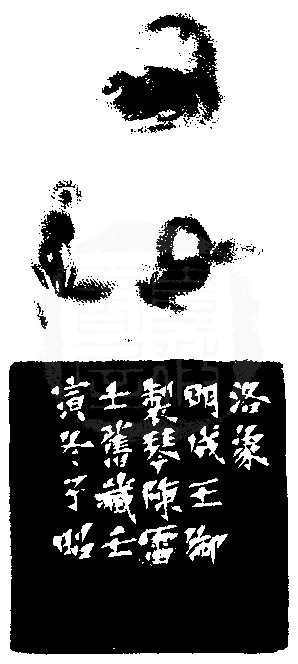 洛象
明成王御
製琴陳雷
士舊藏壬
寅冬子昭